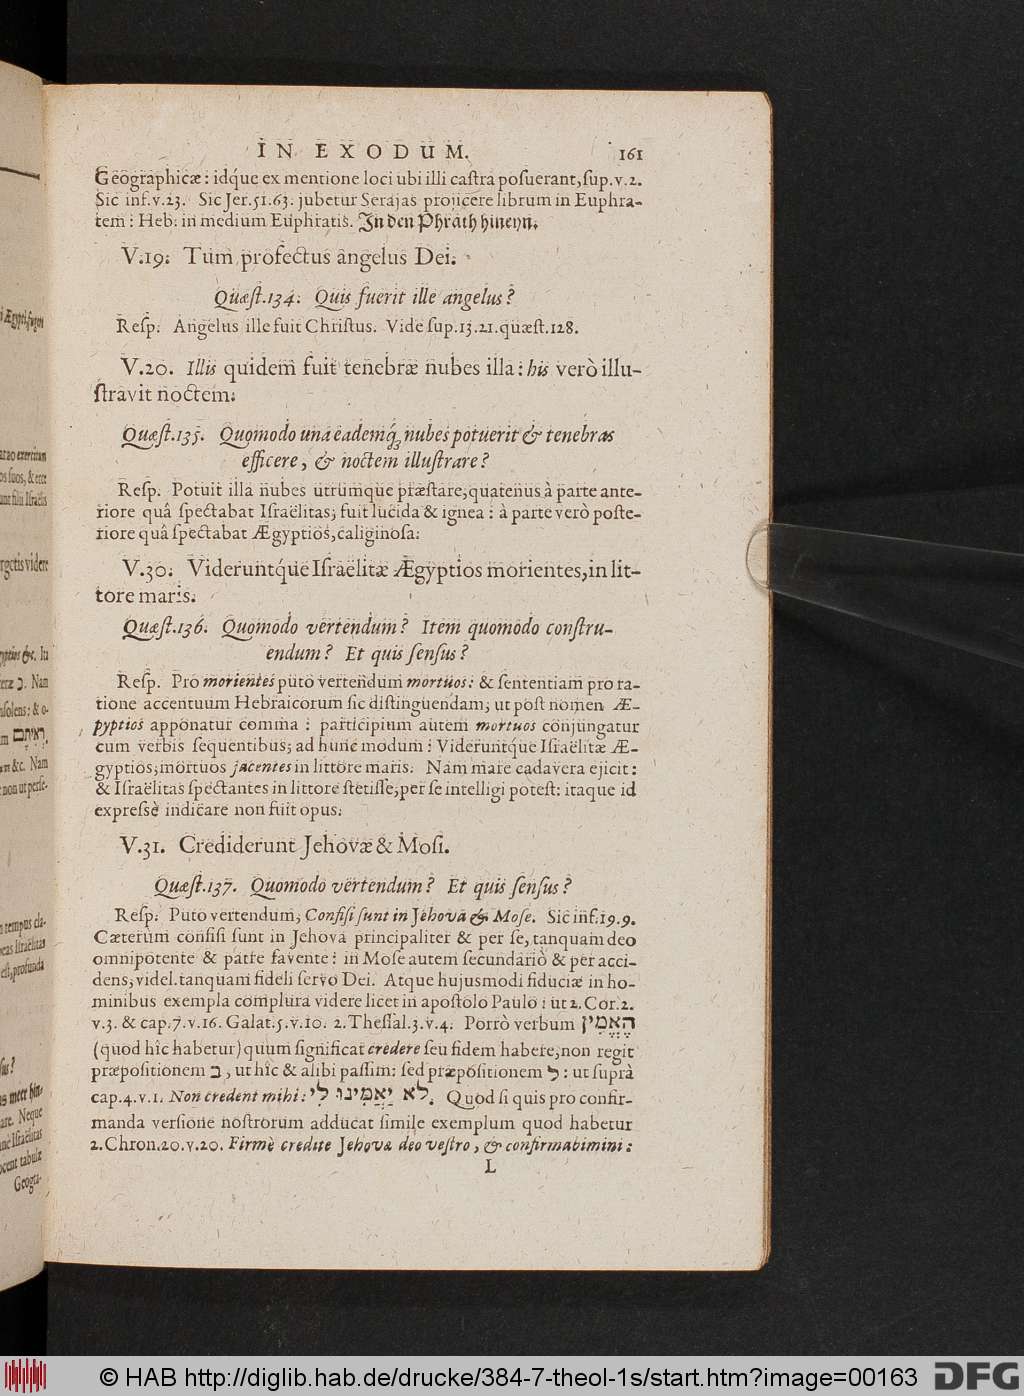 IN EXODUM. 161
Geographicæ: idq́ue ex mentione loci ubi illi castra posuerant, sup. v. 2.
Sic inf. v. 23. Sic Jer. 51. 63. jubetur Serajas projicere librum in Euphra-
tem: Heb. in medium Euphratis. In den Phrath hineyn.
V. 19. Tum profectus angelus Dei.
Quæst. 134. Quis fuerit ille angelus?
Resp. Angelus ille fuit Christus. Vide sup. 13. 21. quæst. 128.
V. 20. Illis quidem fuit tenebræ nubes illa: his verò illu-
stravit noctem.
Quæst. 135. Quomodo una eademq́; nubes potuerit & tenebras
efficere, & noctem illustrare?
Resp. Potuit illa nubes utrumque præstare, quatenus à parte ante-
riore quâ spectabat Israëlitas, fuit lucida & ignea: à parte verò poste-
riore quâ spectabat Ægyptios, caliginosa.
V. 30. Videruntq́ue Israëlitæ Ægyptios morientes, in lit-
tore maris.
Quæst. 136. Quomodo vertendum? Item quomodo constru-
endum? Et quis sensus?
Resp. Pro morientes puto vertendum mortuos: & sententiam pro ra-
tione accentuum Hebraicorum sic distinguendam, ut post nomen Æ-
gyptios apponatur comma: participium autem mortuos conjungatur
cum verbis sequentibus, ad hunc modum: Videruntq́ue Israëlitæ Æ-
gyptios, mortuos jacentes in littore maris. Nam mare cadavera ejicit:
& Israëlitas spectantes in littore stetisse, per se intelligi potest: itaque id
expressè indicare non fuit opus.
V. 31. Crediderunt Jehovæ & Mosi.
Quæst. 137. Quomodo vertendum? Et quis sensus?
Resp. Puto vertendum, Confisi sunt in Jehova & Mose. Sic inf. 19. 9.
Cæterum confisi sunt in Jehova principaliter & per se, tanquam deo
omnipotente & patre favente: in Mose autem secundariò & per acci-
dens, videl. tanquam fideli servo Dei. Atque hujusmodi fiduciæ in ho-
minibus exempla complura videre licet in apostolo Paulo: ut 2. Cor. 2.
v. 3. & cap. 7. v. 16. Galat. 5. v. 10. 2. Thessal. 3. v. 4. Porrò verbum הֶאֱמִין
(quod hîc habetur) quum significat credere seu fidem habere, non regit
præpositionem ב, ut hîc & alibi passim: sed præpositionem ל: ut suprà
cap. 4. v. 1. Non credent mihi: לא יַאֲמִינוּ לִי. Quod si quis pro confir-
manda versione nostrorum adducat simile exemplum quod habetur
2. Chron. 20. v. 20. Firmè credite Jehova deo vestro, & confirmabimini:
L
i Ægypti, fugen
arao exercitum
os suos, & ecce
unt filii Israëlis
ergetis videre
yptios &c. Ita
. Nam
רְאִיתֶם.
&c. Nam
non ut perse-
tempus cla-
Israëlitas
est, profunda
meer hin-
are. Neque
Israëlitas
ocent tabulæ
Geogra-
© HAB http://diglib.hab.de/drucke/384-7-theol-1s/start.htm?image=00163
DFG